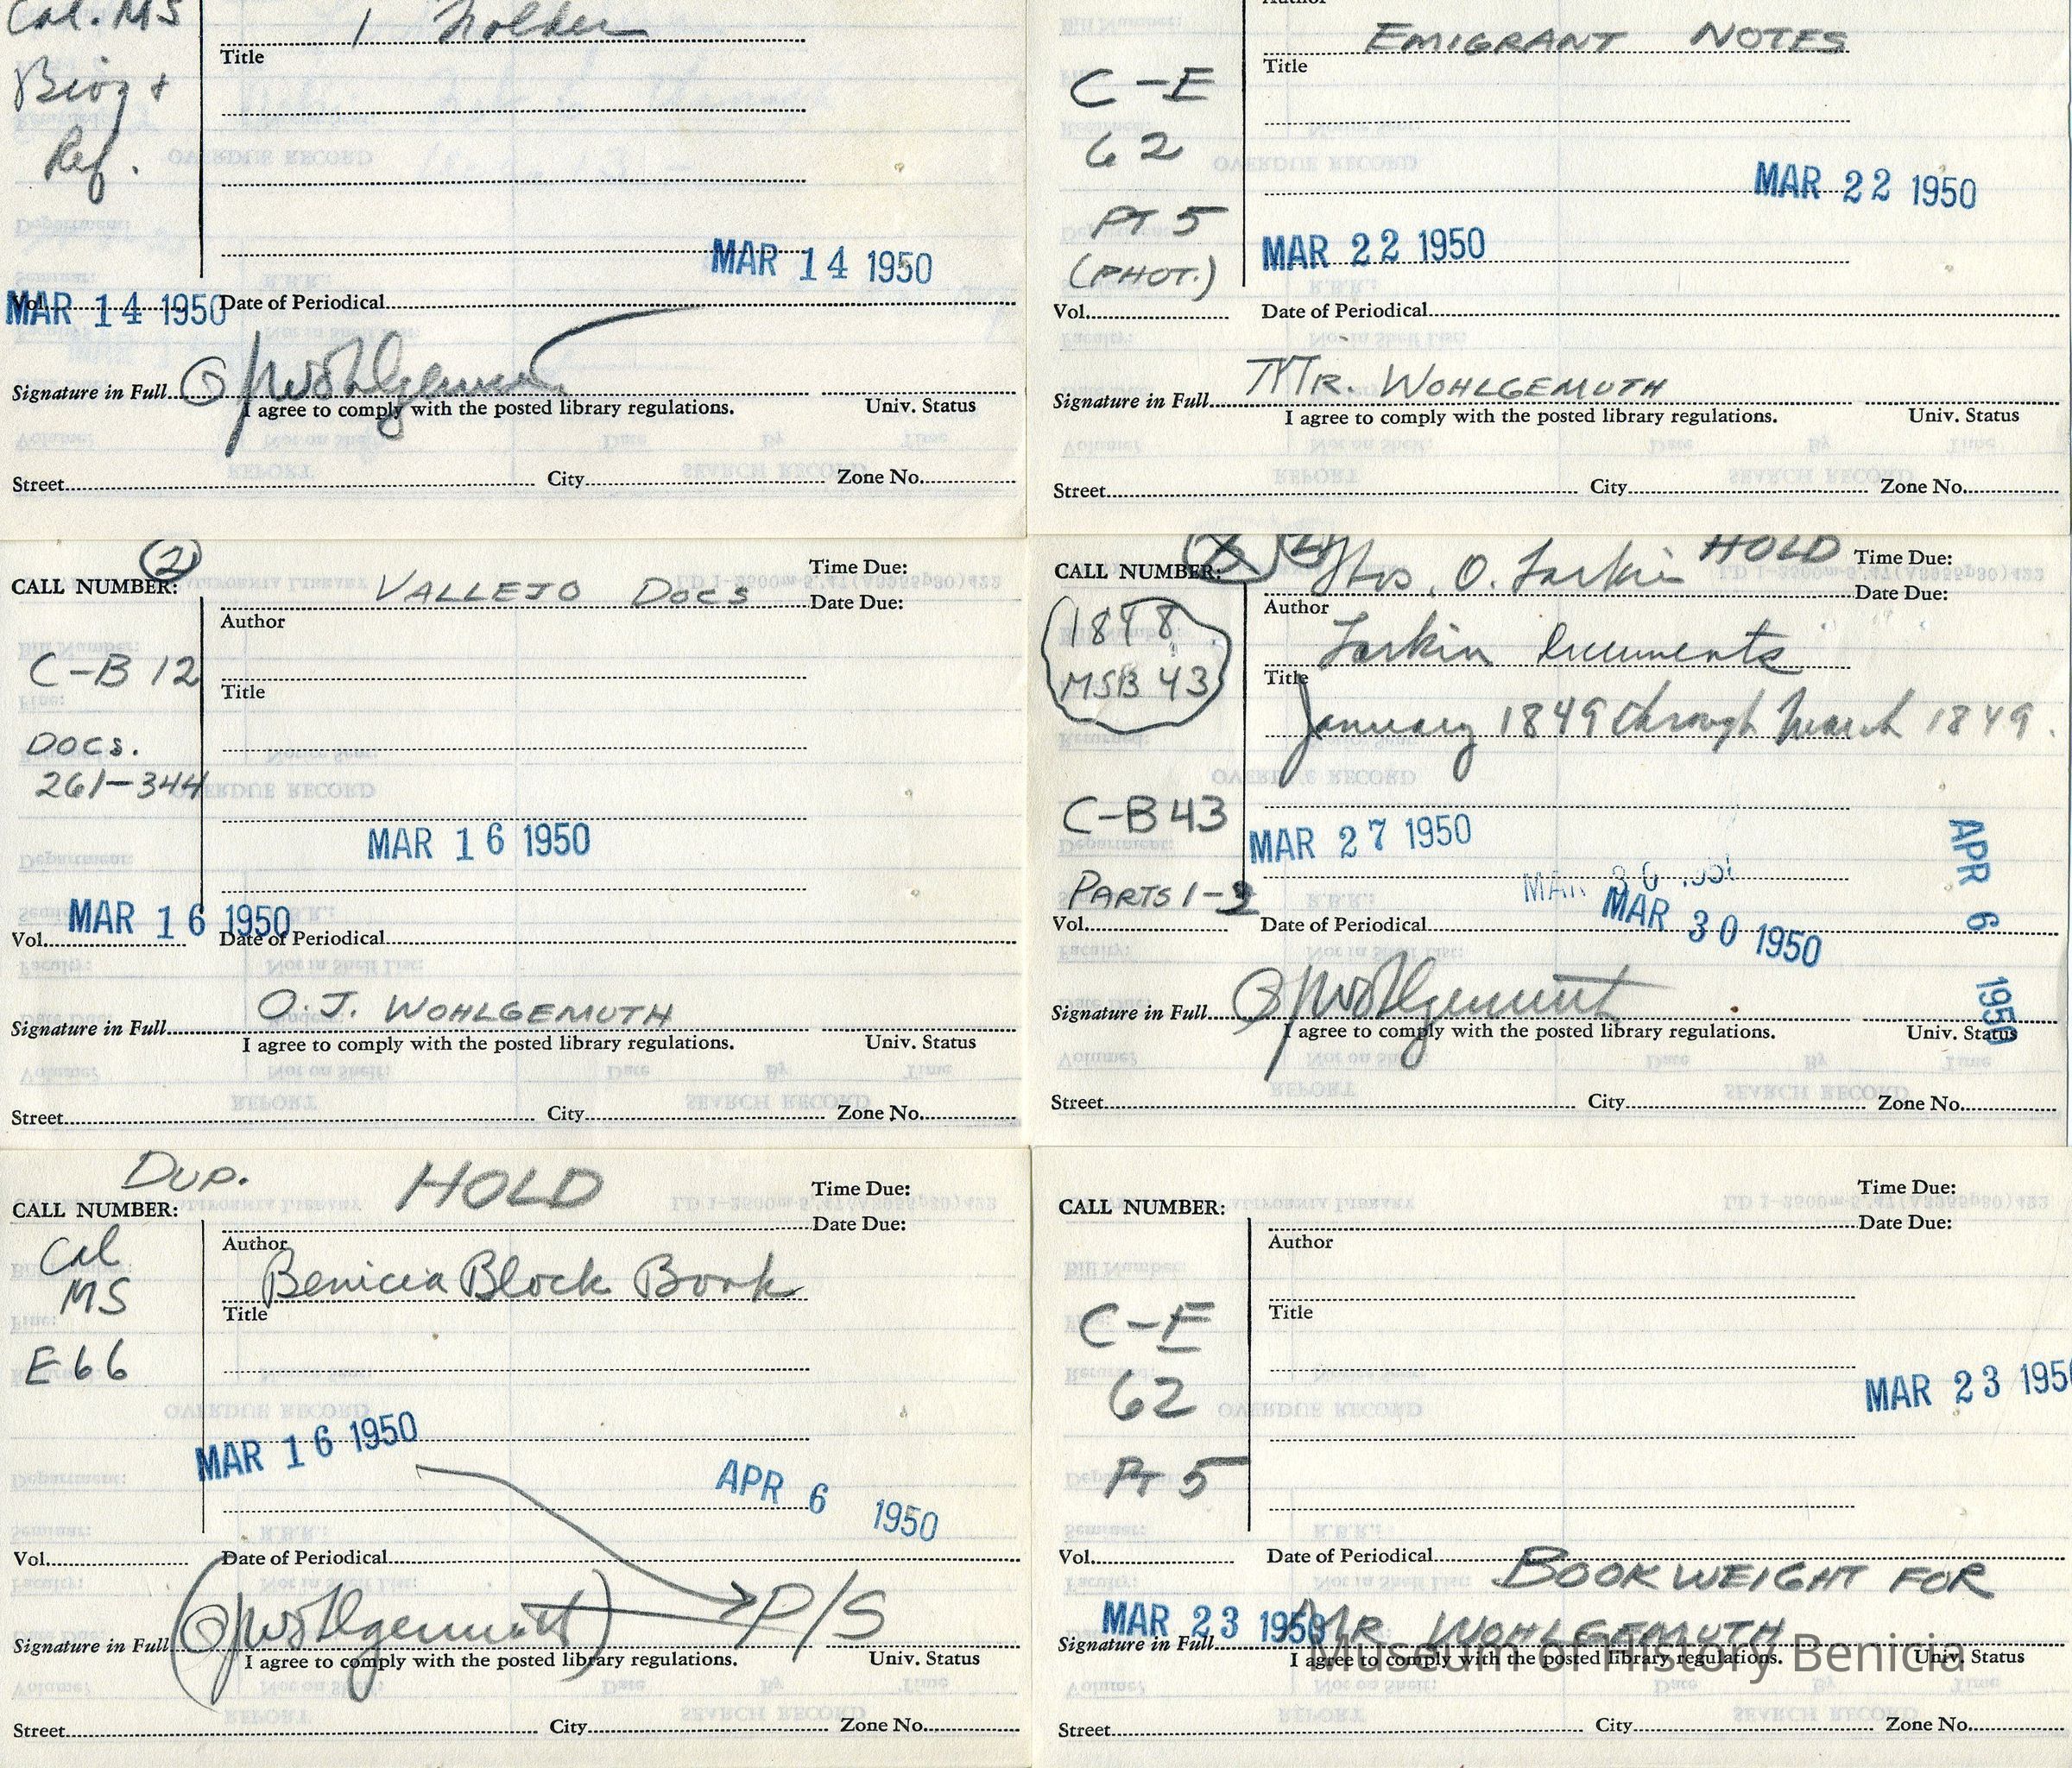 Cal. MS
1 folder
Title
Biog +
Ref.
MAR 14 1950
Vol.
MAR 14 1950
Date of Periodical
Signature in Full
OJWohlgemuth
I agree to comply with the posted library regulations.
Univ. Status
Street
City
Zone No.
Author
EMIGRANT NOTES
Title
C-E
62
PT 5
(PHOT.)
MAR 22 1950
MAR 22 1950
Vol.
Date of Periodical
Signature in Full
MR. WOHLGEMUTH
I agree to comply with the posted library regulations.
Univ. Status
Street
City
Zone No.
2
CALL NUMBER:
VALLEJO DOCS
Time Due:
Date Due:
Author
C-B 12
Title
DOCS.
261-344
MAR 16 1950
MAR 16 1950
Vol.
Date of Periodical
Signature in Full
O.J. WOHLGEMUTH
I agree to comply with the posted library regulations.
Univ. Status
Street
City
Zone No.
CALL NUMBER:
Thos. O. Larkin
HOLD
Time Due:
Date Due:
Author
MSB 43
Larkin Documents
Title
January 1849 through March 1849.
C-B 43
MAR 27 1950
PARTS 1-
MAR 30 1950
APR 6 1950
Vol.
Date of Periodical
Signature in Full
OJWohlgemuth
I agree to comply with the posted library regulations.
Univ. Status
Street
City
Zone No.
DUP.
HOLD
CALL NUMBER:
Time Due:
Date Due:
Cal
MS
E66
Author
Benicia Block Book
Title
MAR 16 1950
APR 6 1950
Vol.
Date of Periodical
Signature in Full
(OJWohlgemuth)
P/S
I agree to comply with the posted library regulations.
Univ. Status
Street
City
Zone No.
CALL NUMBER:
Time Due:
Date Due:
Author
C-E
62
PT 5
Title
MAR 23 195
Vol.
Date of Periodical
BOOKWEIGHT FOR
MAR 23 1950
MR WOHLGEMUTH
Signature in Full
I agree to comply with the posted library regulations.
Univ. Status
Museum of History Benicia
Street
City
Zone No.